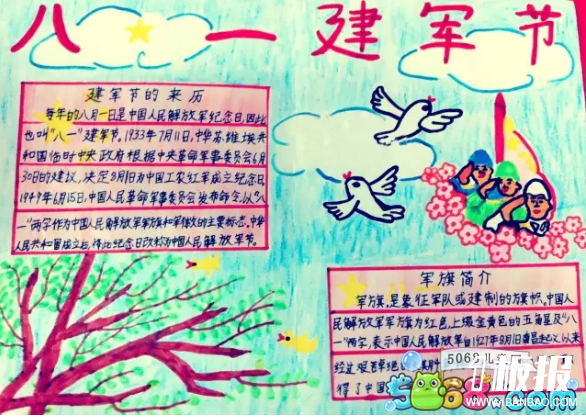 八一建军节
建军节的来历
每年的八月一日是中国人民解放军纪念日,因此
也叫“八一”建军节。1933年7月11日,中华苏维埃共
和国临时中央政府根据中央革命军事委员会6月
30日的建议,决定8月1日为中国工农红军成立纪念日。
1949年6月15日,中国人民革命军事委员会发布命令,以“八
一”两字作为中国人民解放军军旗和军徽的主要标志。中华
人民共和国成立后,将此纪念日改称为中国人民解放军建军节。
军旗简介
军旗,是象征军队或建制的旗帜。中国人
民解放军军旗为红色,上缀金黄色的五角星及“八
一”两字,表示中国人民解放军自1927年8月1日南昌起义以来
经过
得了中国
5068儿
板报
WWW.1BANBAO.COM